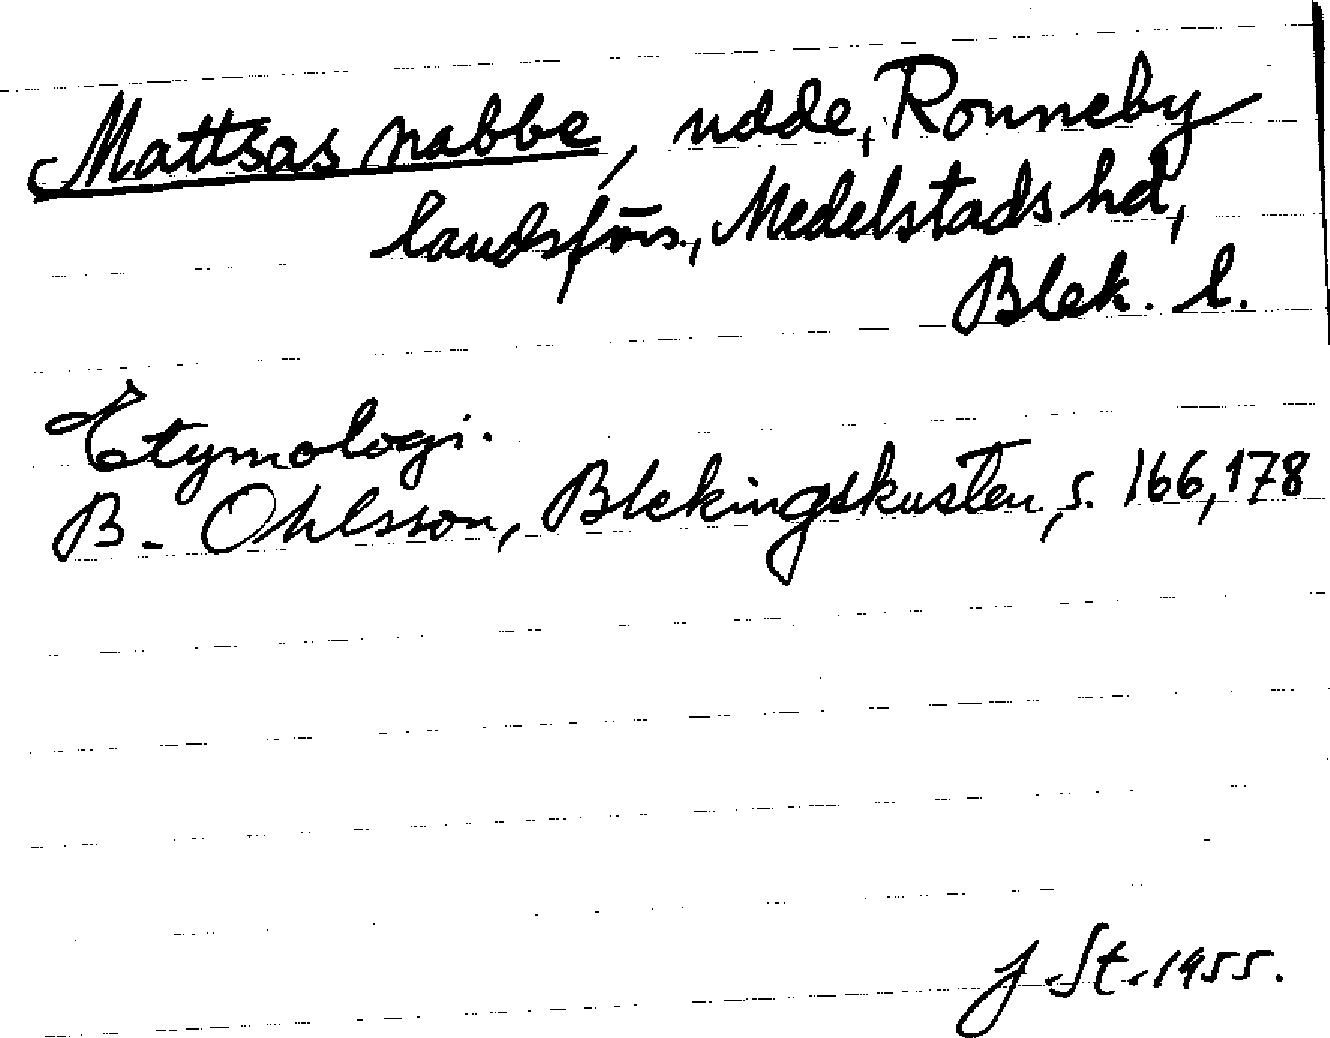 Mattsas nabbe, udde, Ronneby
landsförs., Medelstads hd,
Blek. l.
Etymologi.
B. Ohlsson, Blekingskusten, s. 166, 178
J. St. 1955.